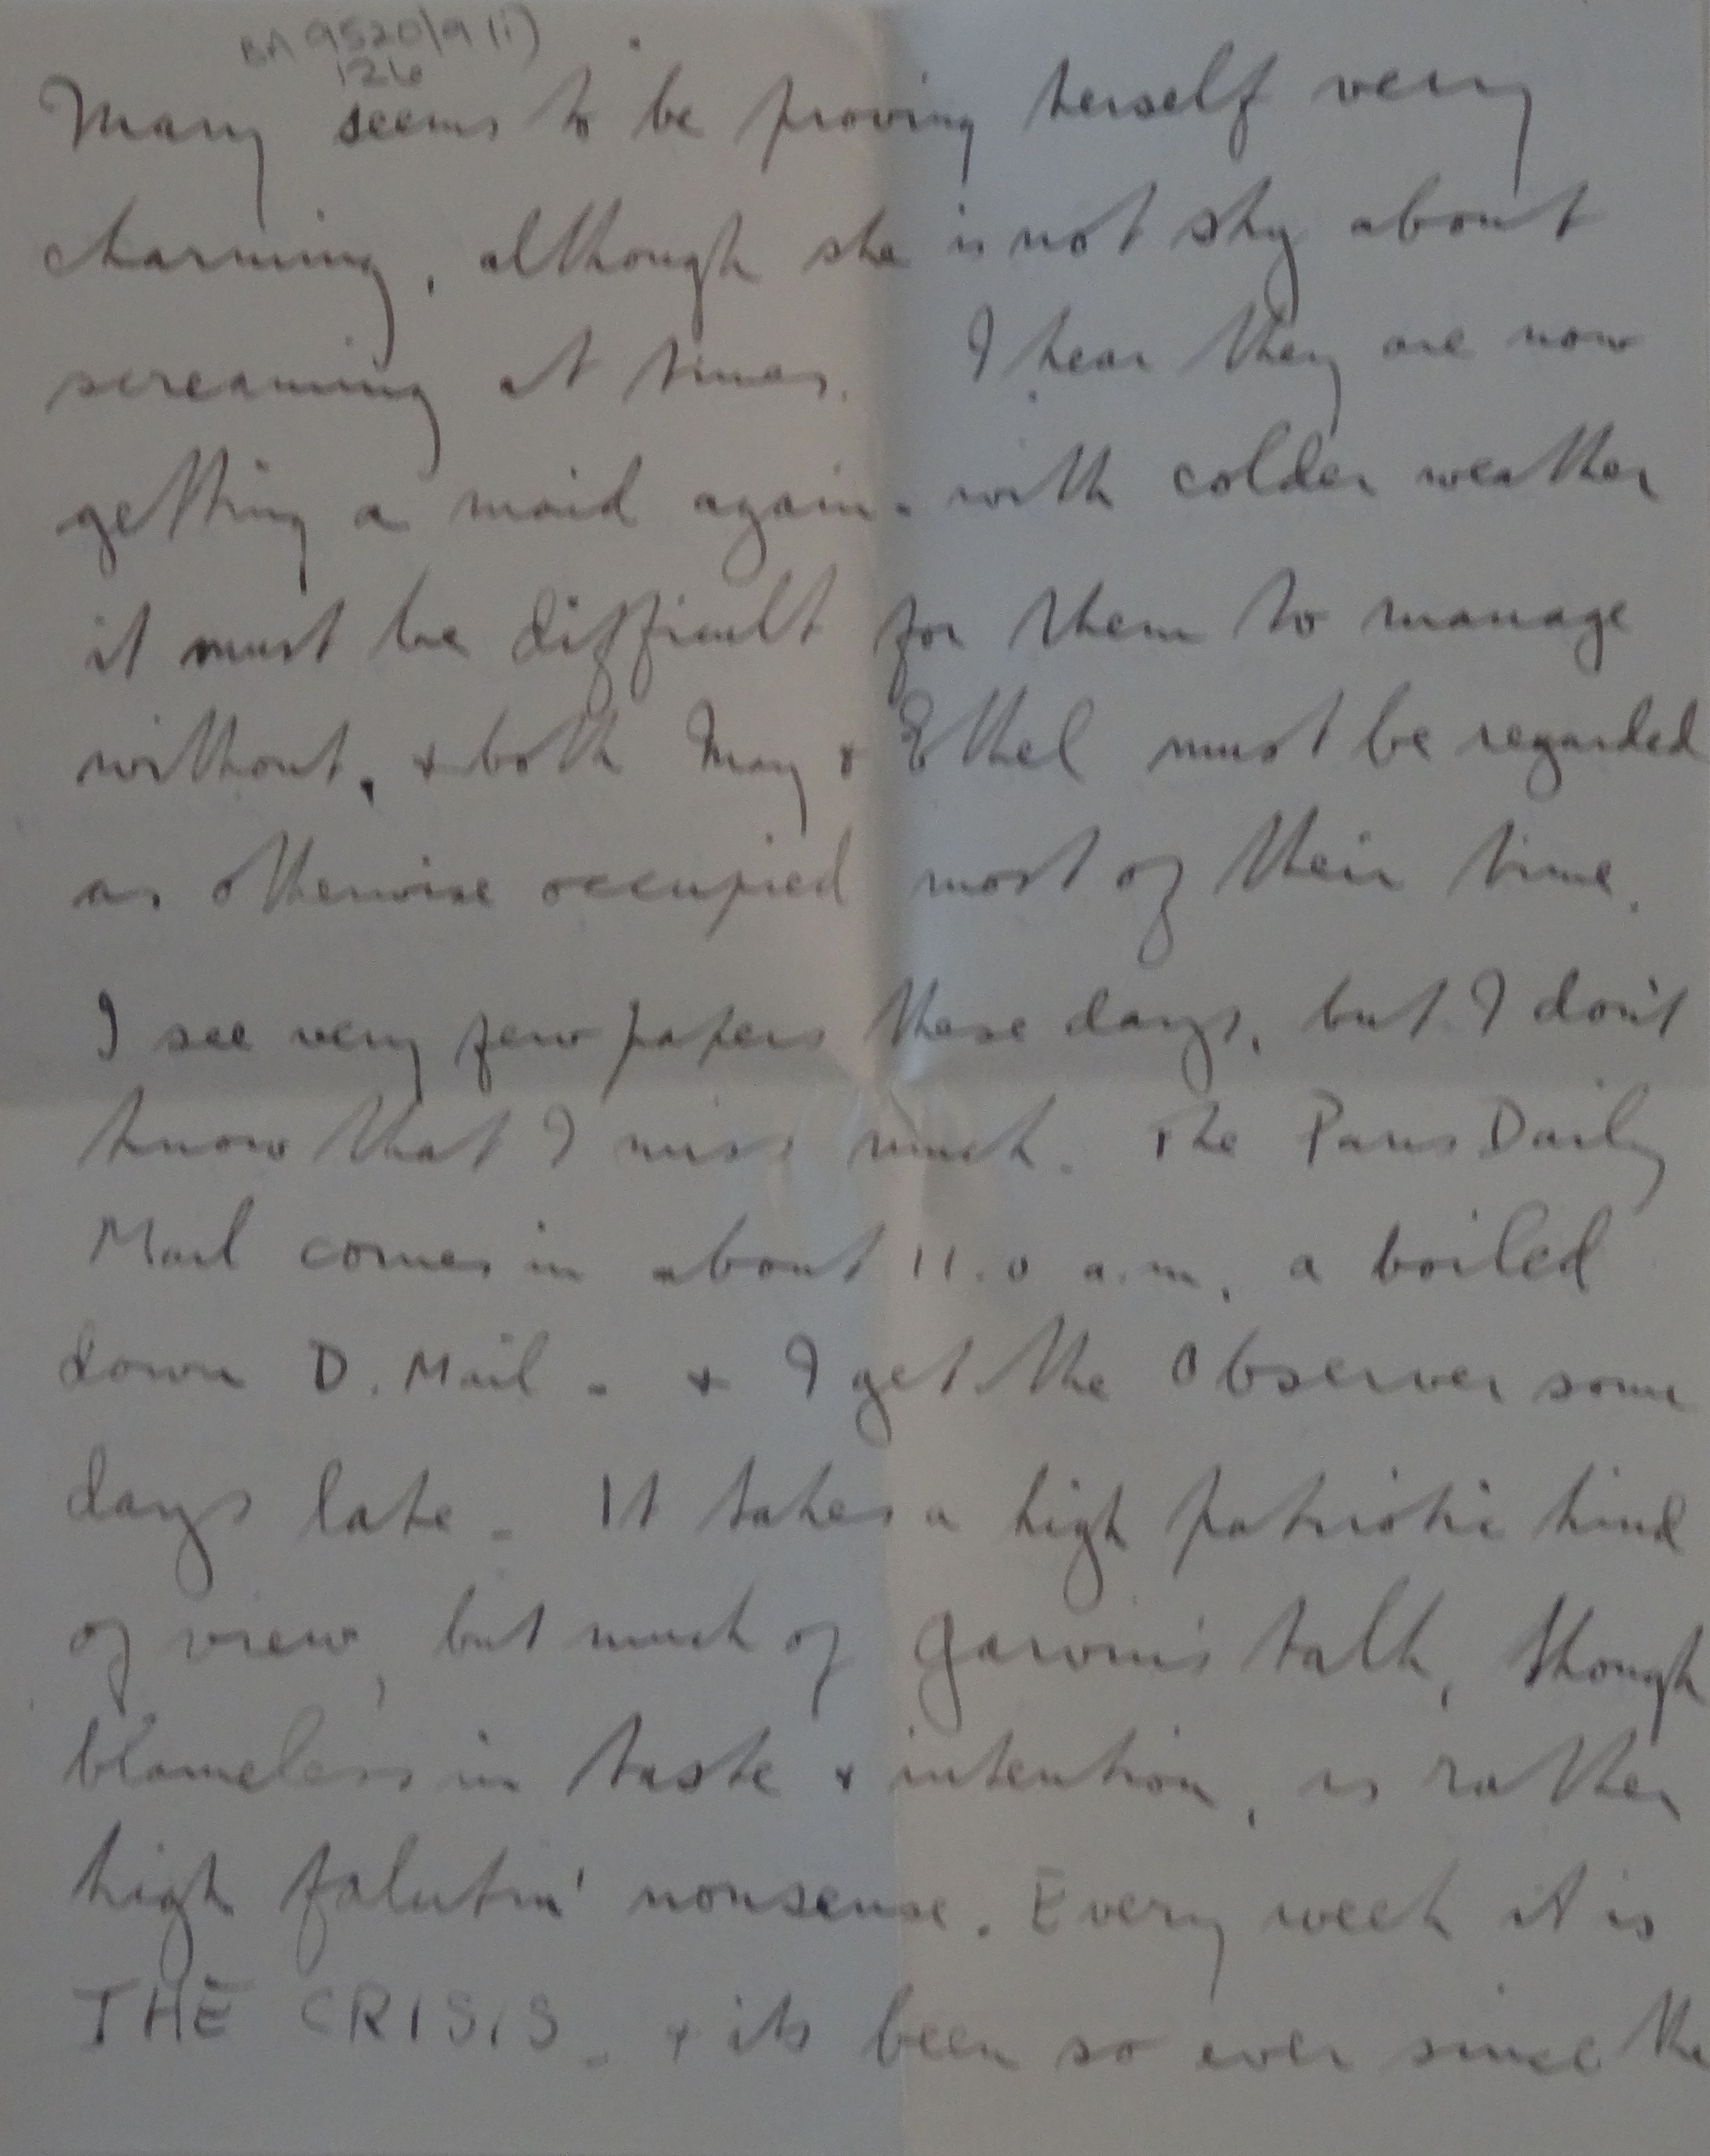 BA 9520/9 (i)
126
Mary seems to be proving herself very
charming, although she is not shy about
screaming at times. I hear they are now
getting a maid again. with colder weather
it must be difficult for them to manage
without, & both May & Ethel must be regarded
as otherwise occupied most of their time.
I see very few papers these days, but I don't
know that I miss much. The Paris Daily
Mail comes in about 11.0 a.m, a boiled
down D. Mail - & I get the Observer some
days late - It takes a high patriotic kind
of view, but much of Garvin's talk, though
blameless in taste & intention, is rather
high falutin' nonsense. Every week it is
THE CRISIS - & its been so ever since the